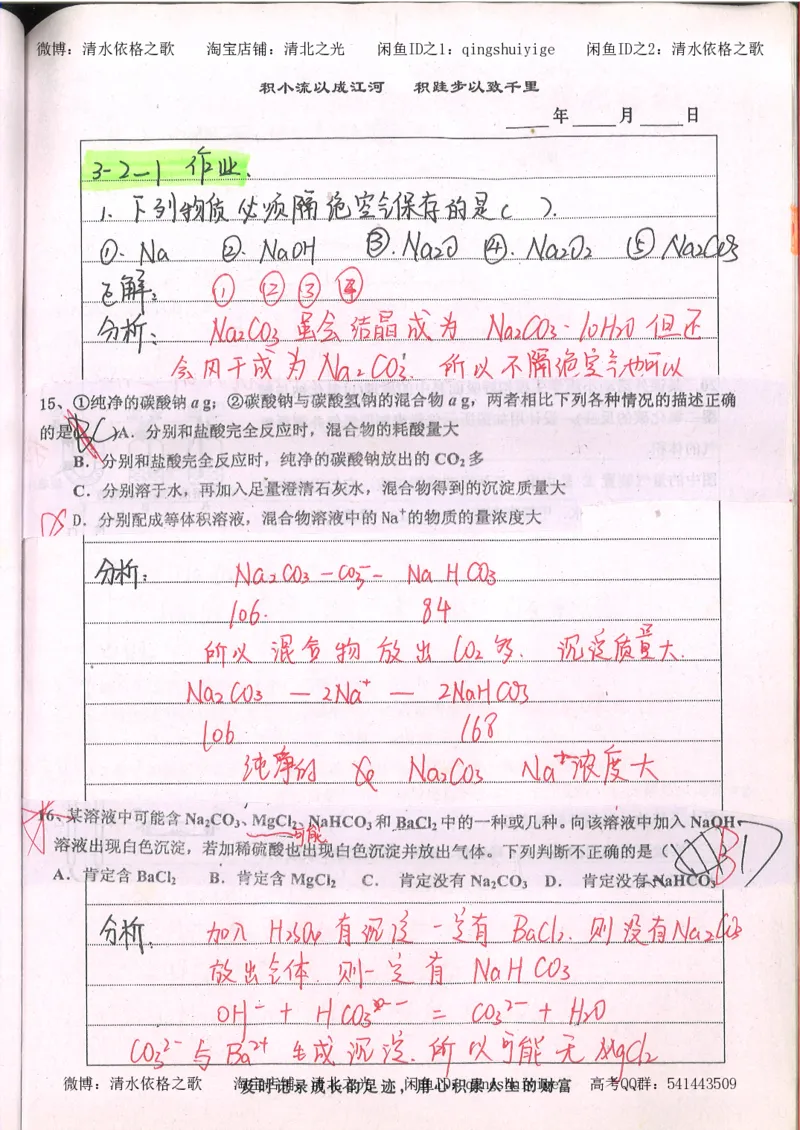 微博：清水依格之歌 淘宝店铺：清北之光 闲鱼ID之1：qingshuiyige 闲鱼ID之2：清水依格之歌
积小流以成江河 积跬步以致千里
年 月 日
3-2-1 作业.
1. 下列物质必须隔绝空气保存的是( ).
①. Na ②. NaOH ③. Na2O ④. Na2O2 ⑤ Na2CO3
正解: ① ② ③ ④
分析: Na2CO3 虽会结晶成为 Na2CO3·10H2O 但还
会风干成为 Na2CO3. 所以不隔绝空气也可以
15、①纯净的碳酸钠 a g；②碳酸钠与碳酸氢钠的混合物 a g，两者相比下列各种情况的描述正确
的是(BC)A．分别和盐酸完全反应时，混合物的耗酸量大
B．分别和盐酸完全反应时，纯净的碳酸钠放出的 CO2 多
C．分别溶于水，再加入足量澄清石灰水，混合物得到的沉淀质量大
D．分别配成等体积溶液，混合物溶液中的 Na+的物质的量浓度大
分析: Na2CO3 — CO3 — NaHCO3
106. 84
所以 混合物 放出 CO2 多. 沉淀质量大.
Na2CO3 — 2Na+ — 2NaHCO3
106 168
纯净的 Na2CO3 Na+浓度大
16、某溶液中可能含 Na2CO3、MgCl2、NaHCO3 和 BaCl2 中的一种或几种。向该溶液中加入 NaOH
可能
溶液出现白色沉淀，若加稀硫酸也出现白色沉淀并放出气体。下列判断不正确的是（ B ）
A．肯定含 BaCl2 B．肯定含 MgCl2 C． 肯定没有 Na2CO3 D． 肯定没有 NaHCO3
分析: 加入 H2SO4 有沉淀 一定有 BaCl2. 则没有Na2CO3
放出气体. 则一定有 NaHCO3
OH- + HCO3- = CO3 2- + H2O
CO3 2- 与 Ba2+ 生成沉淀. 所以可能无 MgCl2
微博：清水依格之歌 淘宝店铺：清北之光 闲鱼ID之1：qingshuiyige 高考QQ群：541443509
及时记录成长的足迹，用心积累人生的财富